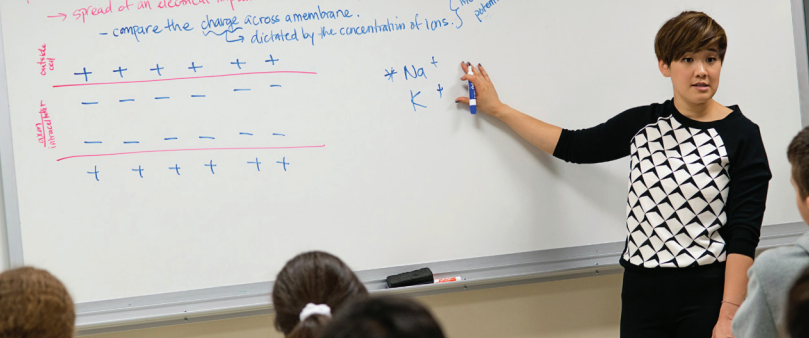 → spread of an electrical
- compare the charge across a membrane.
↳ dictated by the concentration of ions.
outside cell
+ + + + + +
— — — — — —
axon intracellular
— — — — — —
+ + + + + +
* Na+
K+